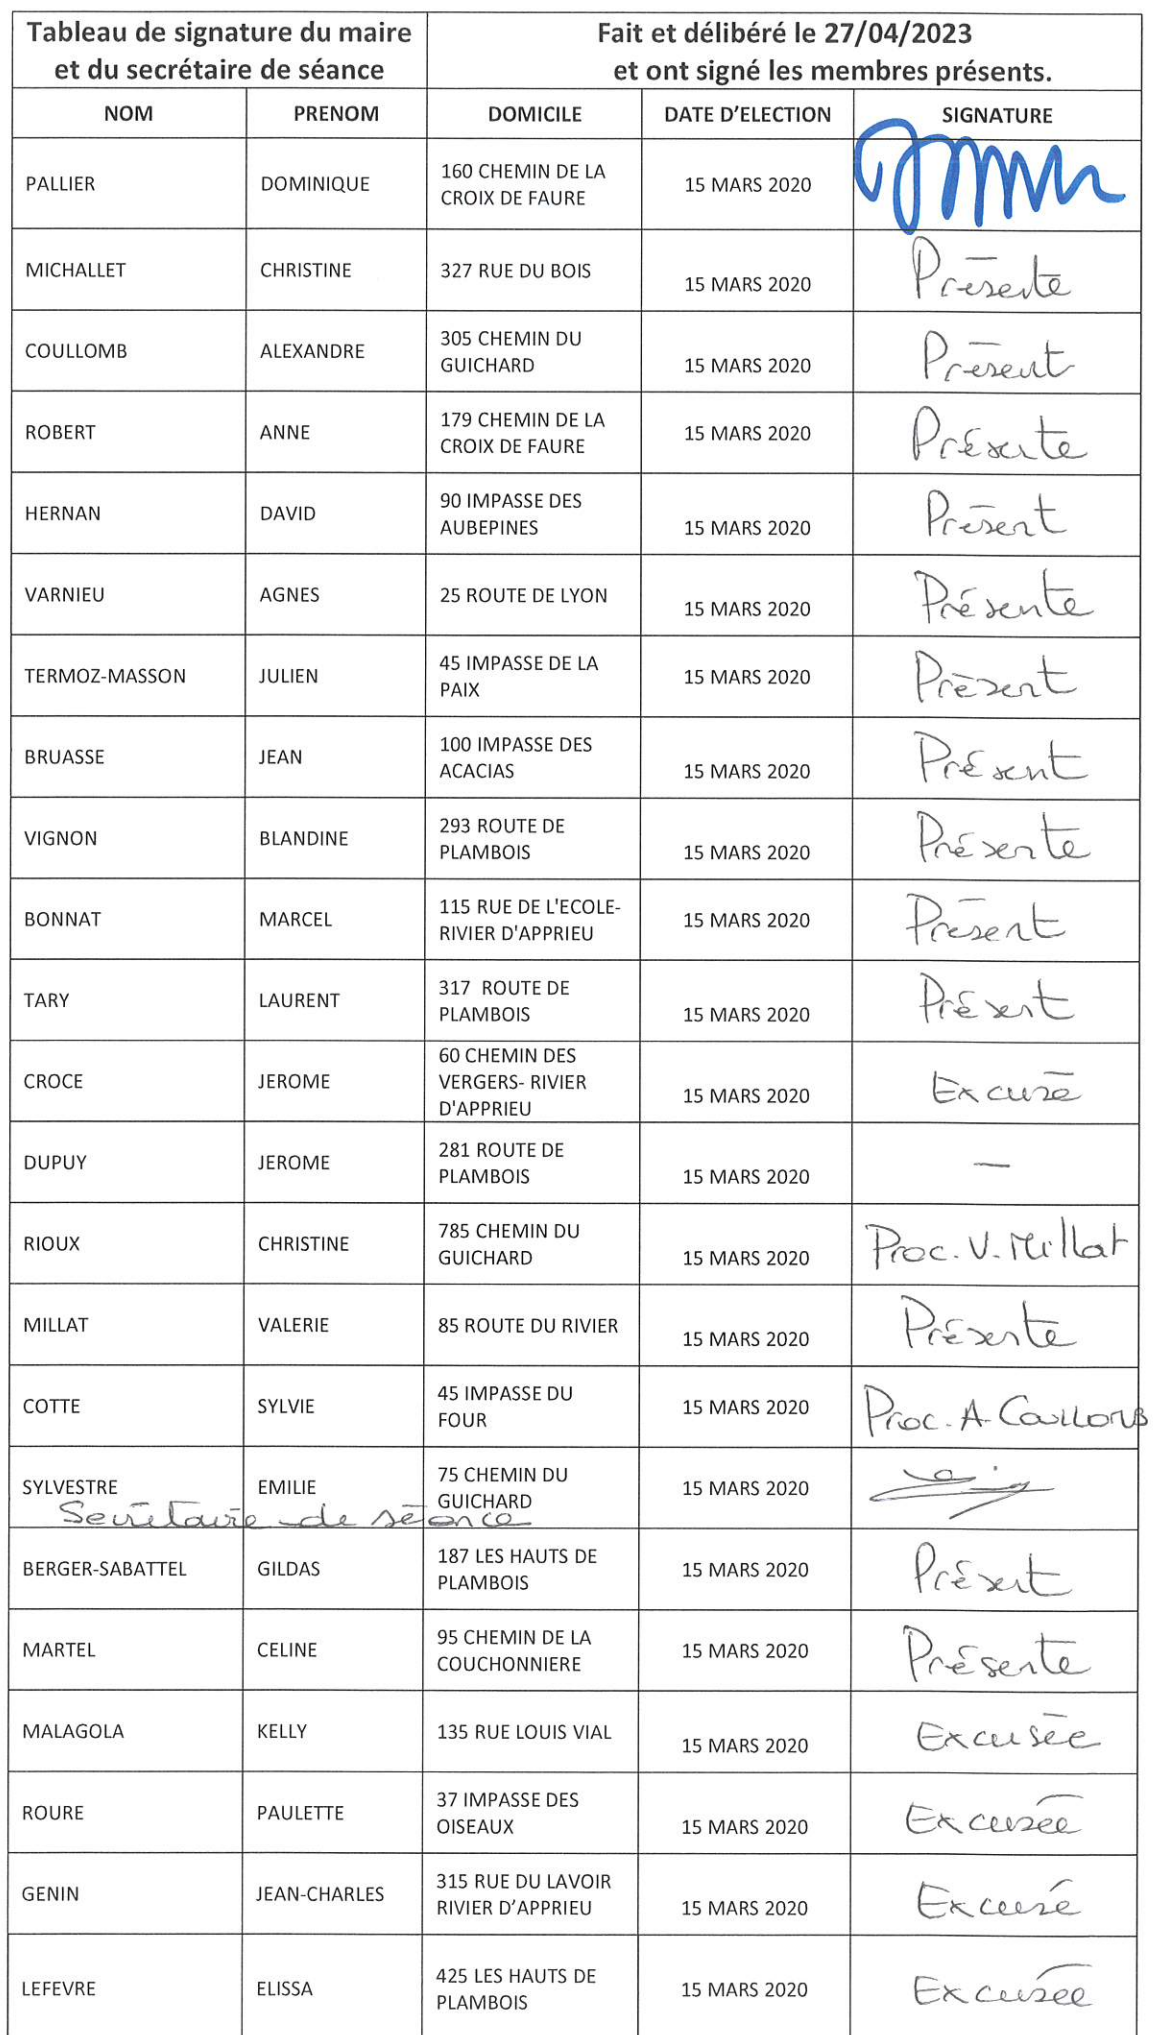 Tableau de signature du maire
et du secrétaire de séance
Fait et délibéré le 27/04/2023
et ont signé les membres présents.
NOM PRENOM DOMICILE DATE D'ELECTION SIGNATURE
PALLIER DOMINIQUE 160 CHEMIN DE LA
CROIX DE FAURE 15 MARS 2020
MICHALLET CHRISTINE 327 RUE DU BOIS 15 MARS 2020 Présente
COULLOMB ALEXANDRE 305 CHEMIN DU
GUICHARD 15 MARS 2020 Présent
ROBERT ANNE 179 CHEMIN DE LA
CROIX DE FAURE 15 MARS 2020 Présente
HERNAN DAVID 90 IMPASSE DES
AUBEPINES 15 MARS 2020 Présent
VARNIEU AGNES 25 ROUTE DE LYON 15 MARS 2020 Présente
TERMOZ-MASSON JULIEN 45 IMPASSE DE LA
PAIX 15 MARS 2020 Présent
BRUASSE JEAN 100 IMPASSE DES
ACACIAS 15 MARS 2020 Présent
VIGNON BLANDINE 293 ROUTE DE
PLAMBOIS 15 MARS 2020 Présente
BONNAT MARCEL 115 RUE DE L'ECOLE-
RIVIER D'APPRIEU 15 MARS 2020 Présent
TARY LAURENT 317 ROUTE DE
PLAMBOIS 15 MARS 2020 Présent
CROCE JEROME 60 CHEMIN DES
VERGERS- RIVIER
D'APPRIEU 15 MARS 2020 Excusé
DUPUY JEROME 281 ROUTE DE
PLAMBOIS 15 MARS 2020 —
RIOUX CHRISTINE 785 CHEMIN DU
GUICHARD 15 MARS 2020 Proc. V. Millat
MILLAT VALERIE 85 ROUTE DU RIVIER 15 MARS 2020 Présente
COTTE SYLVIE 45 IMPASSE DU
FOUR 15 MARS 2020 Proc. A. Coullomb
SYLVESTRE EMILIE 75 CHEMIN DU
GUICHARD 15 MARS 2020
Secrétaire de séance
BERGER-SABATTEL GILDAS 187 LES HAUTS DE
PLAMBOIS 15 MARS 2020 Présent
MARTEL CELINE 95 CHEMIN DE LA
COUCHONNIERE 15 MARS 2020 Présente
MALAGOLA KELLY 135 RUE LOUIS VIAL 15 MARS 2020 Excusée
ROURE PAULETTE 37 IMPASSE DES
OISEAUX 15 MARS 2020 Excusée
GENIN JEAN-CHARLES 315 RUE DU LAVOIR
RIVIER D'APPRIEU 15 MARS 2020 Excusé
LEFEVRE ELISSA 425 LES HAUTS DE
PLAMBOIS 15 MARS 2020 Excusée